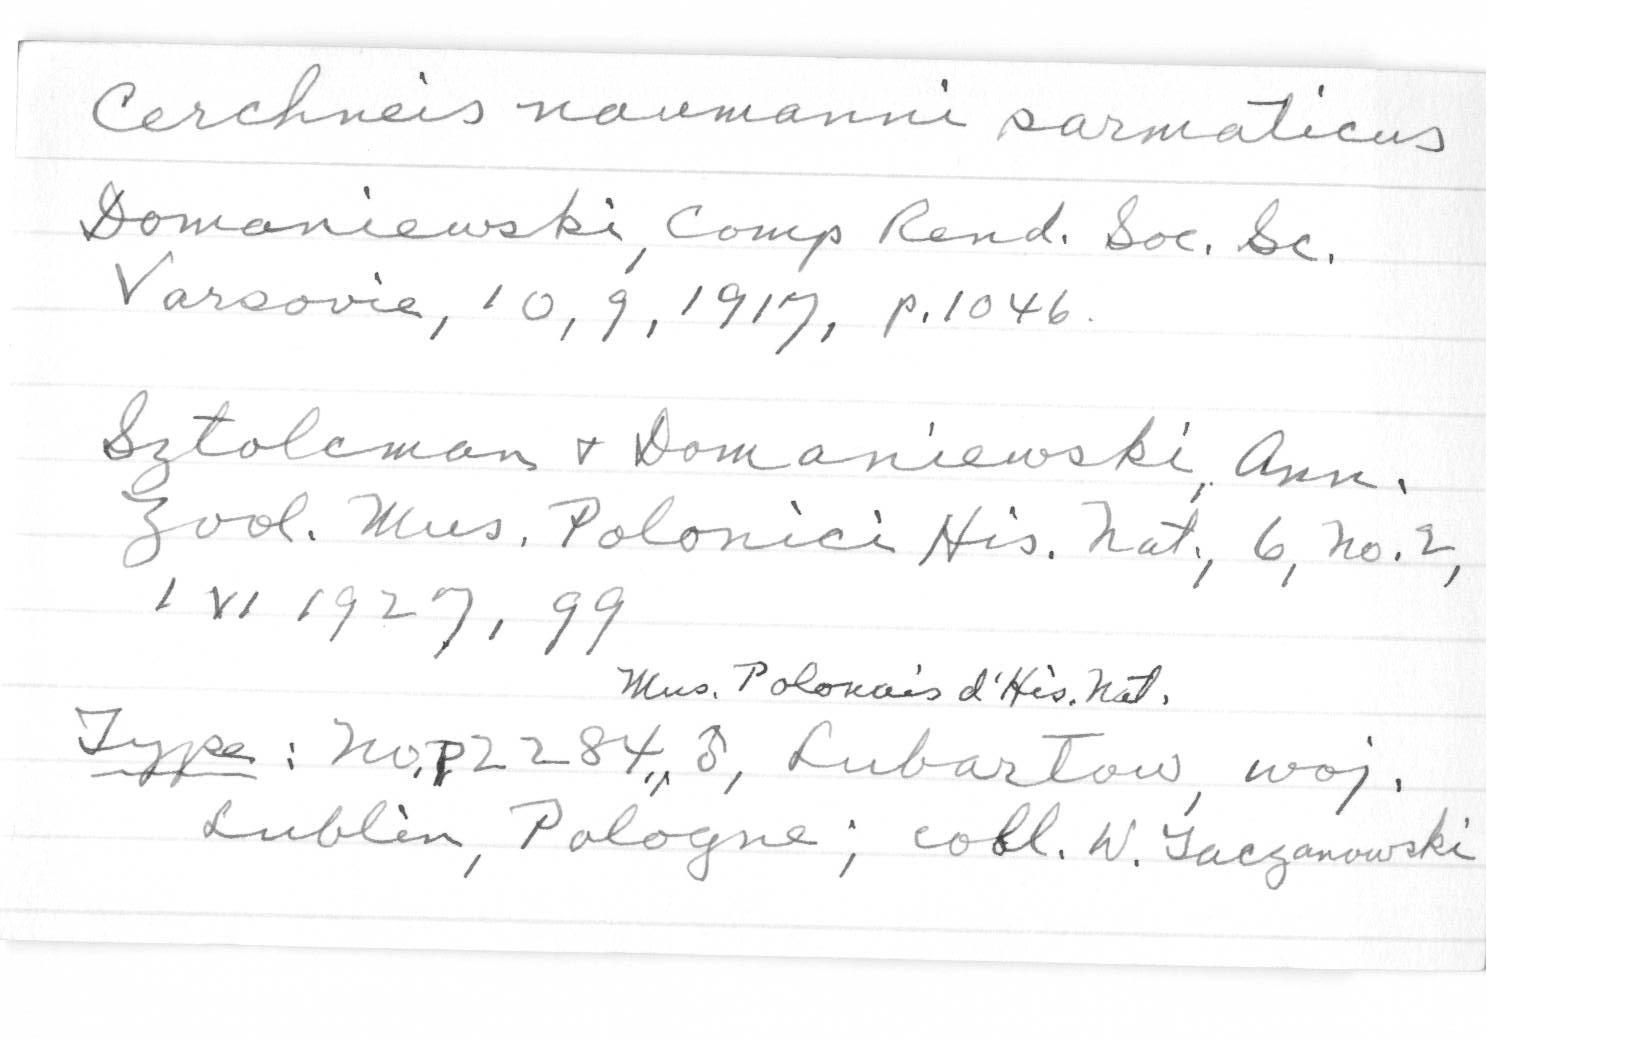 Cerchneis naumanni sarmaticus
Domaniewski, Comp Rend. Soc. Sc.
Varsovie, 10, 9, 1917, p. 1046.
Sztolcman & Domaniewski, Ann.
Zool. Mus. Polonici His. Nat., 6, no. 2,
1 VI 1927, 99
Mus. Polonais d'His. Nat.
Type: No. P2284, ♂, Lubartow, woj.
Lublin, Pologne; coll. W. Taczanowski